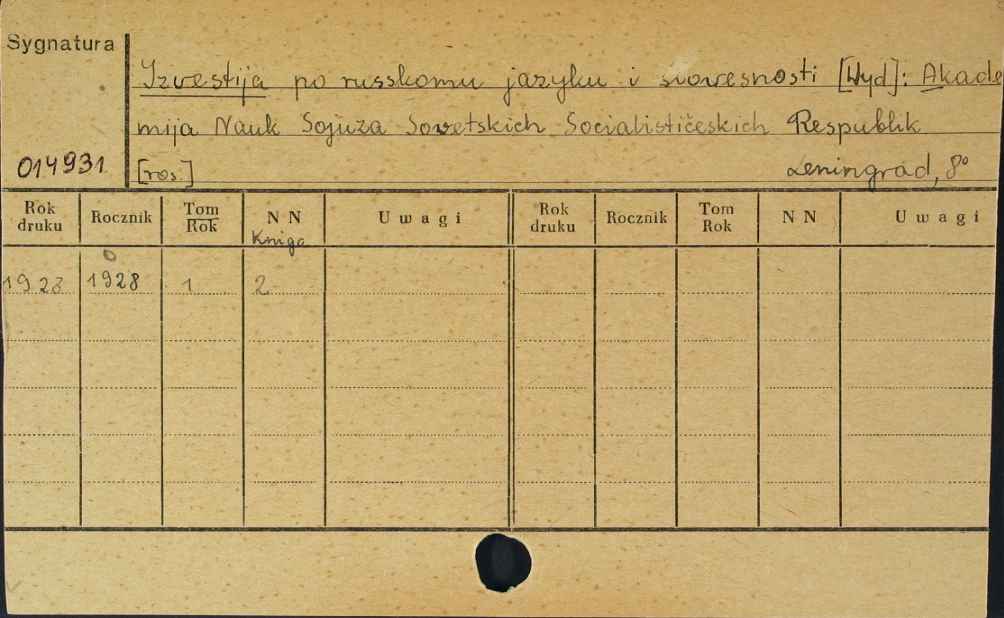 Sygnatura
Izvestija po russkomu jazyku i slovesnosti [Wyd]: Akade
mija Nauk Sojuza Sovetskich Socialističeskich Respublik
014931 [ros.] Leningrad, 8°
Rok druku Rocznik Tom Rok N N Uwagi Rok druku Rocznik Tom Rok N N Uwagi
Kniga
1928 1928 1 2